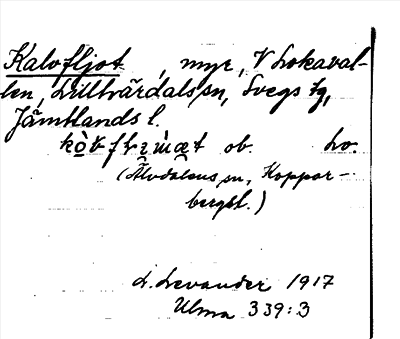 Kalvfljot, myr, V Lokaval-
len, Lillhärdals sn, Svegs tg,
Jämtlands l.
ob. ho.
(Älvdalens sn, Koppar-
bergsl.)
L. Levander 1917
Ulma 339:3